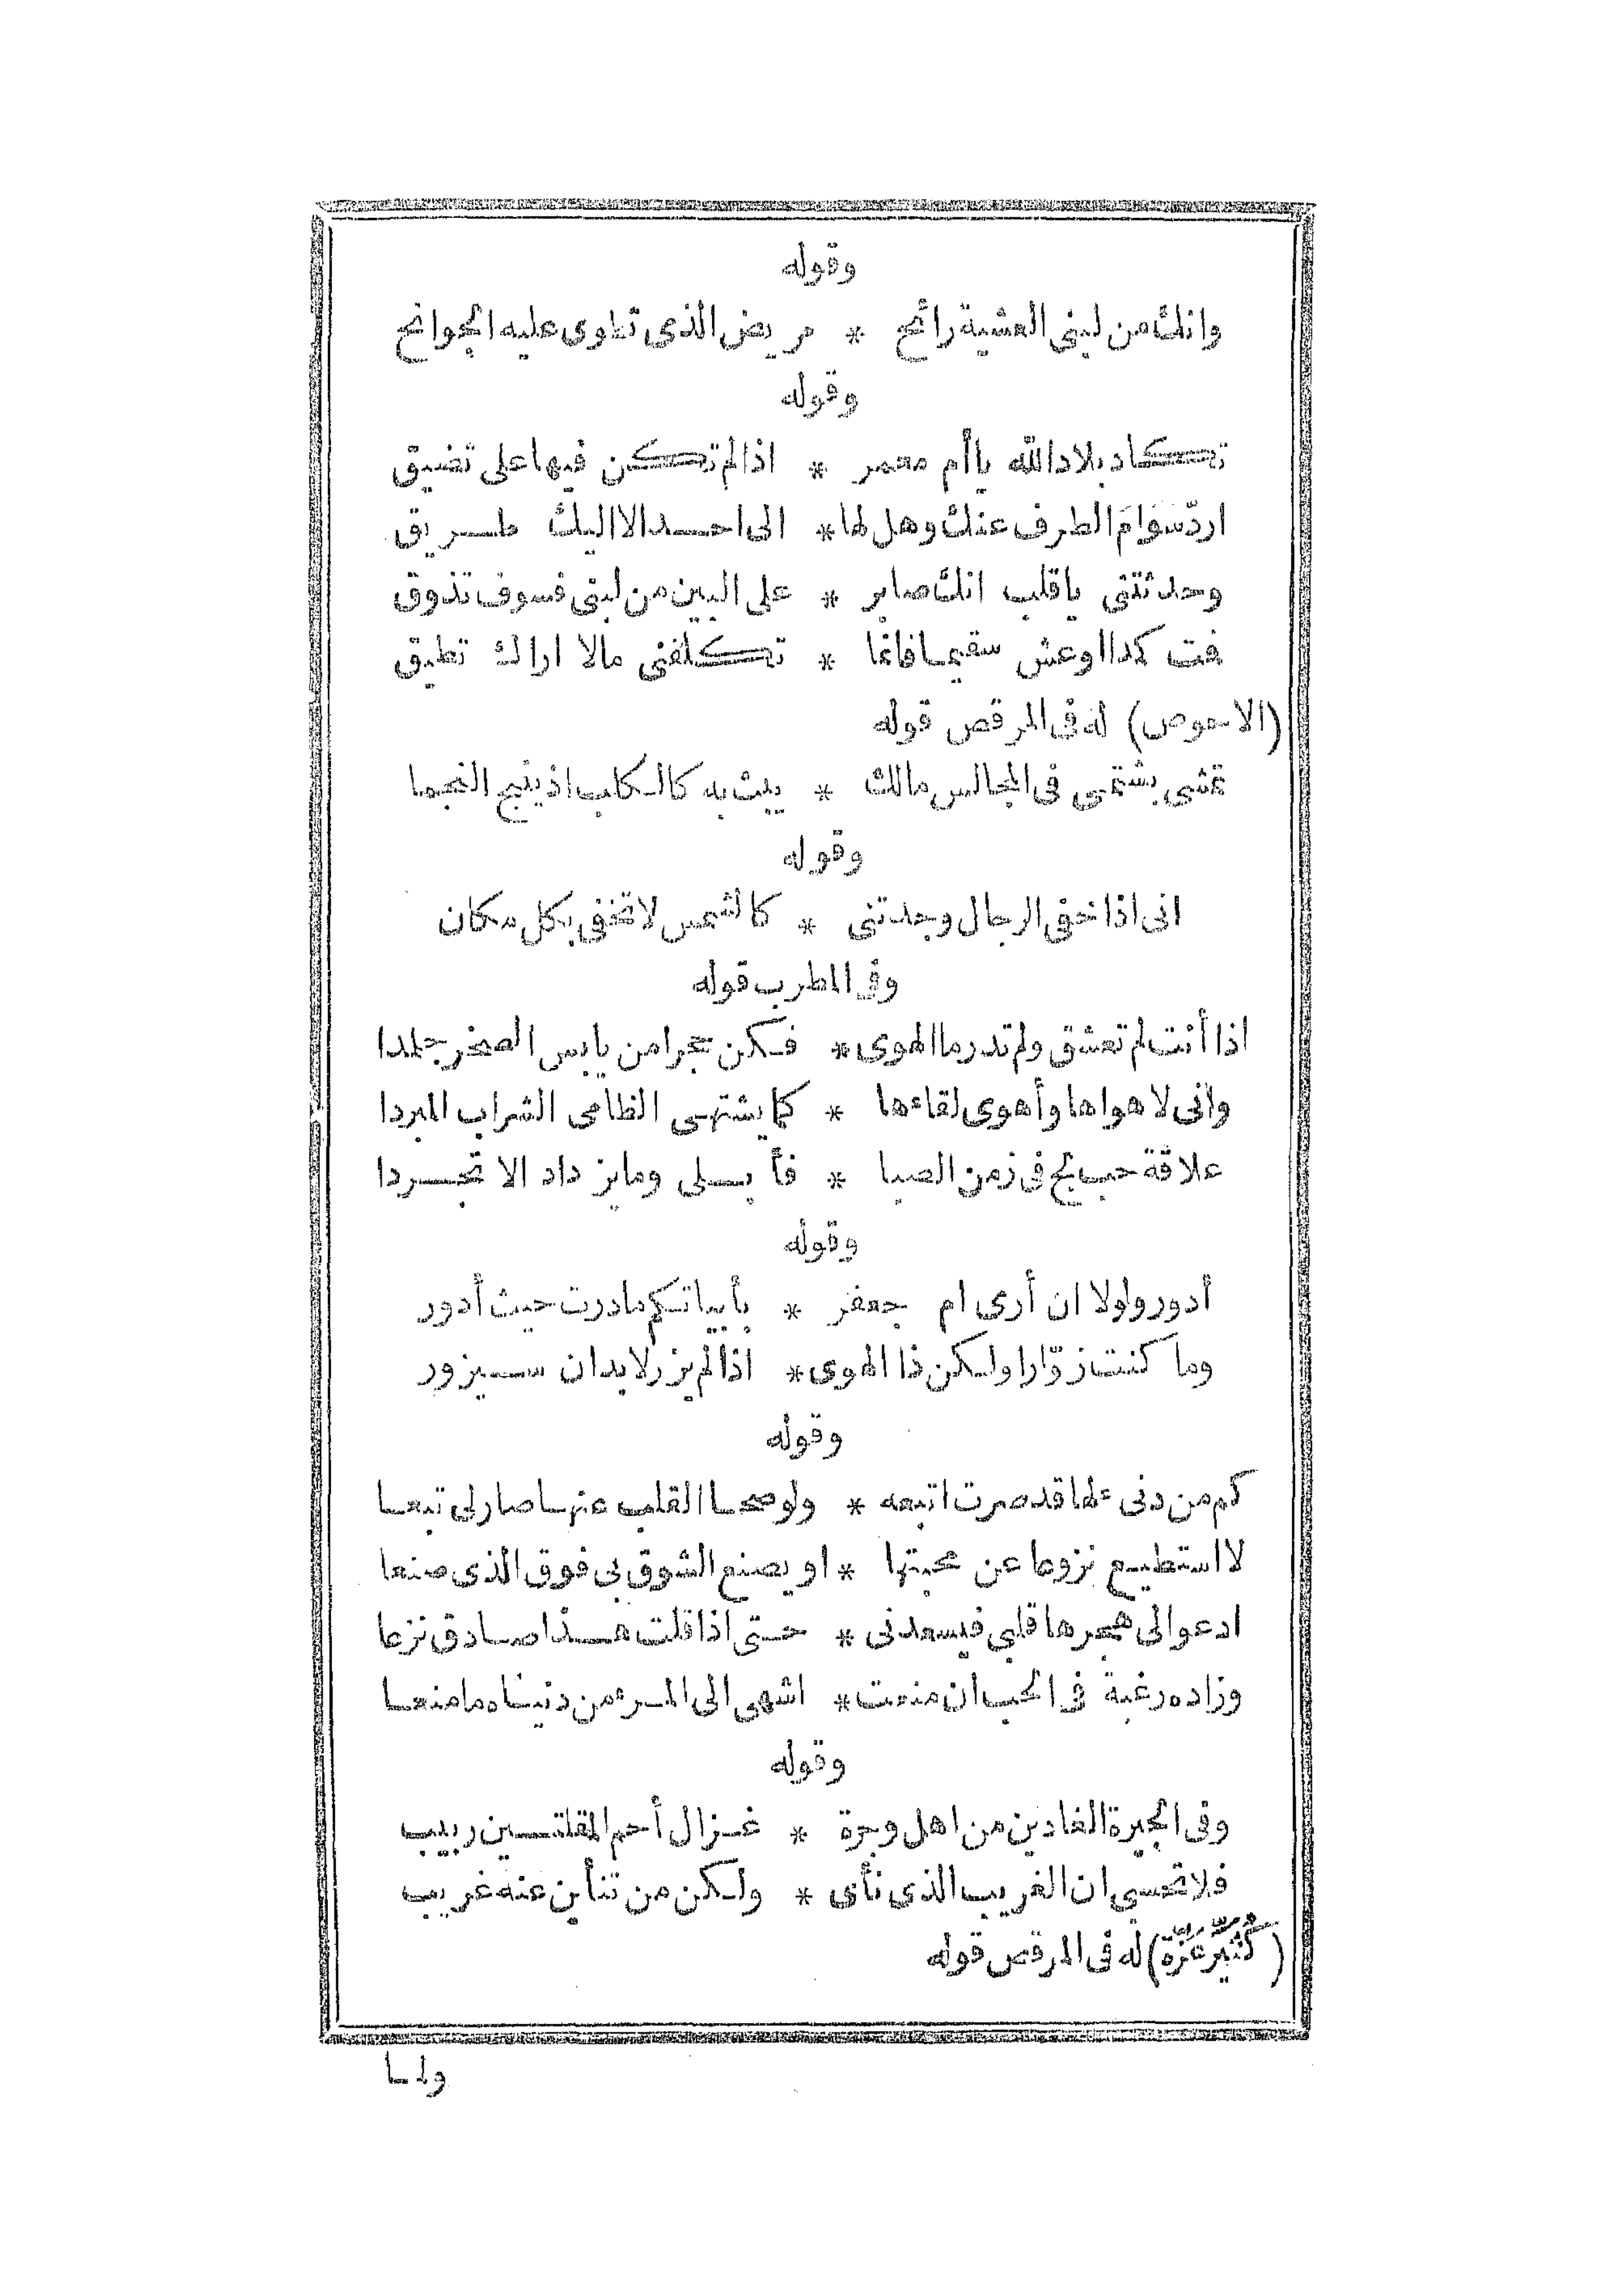 وقوله
وانك من لبنى العشية رائح * مريض الذى تطوى عليه الجوانح
وقوله
تكاد بلاد الله ياأم معمر * اذا لم تكن فيها على تضيق
اردّ سَوَامَ الطرف عنك وهل لها * الى احد الا اليك طريق
وحدثتنى ياقلب انك صابر * على البين من لبنى فسوف تذوق
فت كمدا اوعش سقيما فانما * تكلفنى مالا اراك تطيق
(الاحوص) له فى المرقص قوله
تمشى بشتمى فى المجالس مالك * يبث به كالكلب اذ ينبح النجما
وقوله
انى اذا خفى الرجال وجدتنى * كالشمس لا تخفى بكل مكان
وفى المطرب قوله
اذا أنت لم تعشق ولم تدر ما الهوى * فكن حجرا من يابس الصخر جلمدا
وانى لاهواها وأهوى لقاءها * كما يشتهى الظامى الشراب المبردا
علاقة حب لج فى زمن الصبا * فأبلى وما يزداد الا تجردا
وقوله
أدور ولولا ان أرى ام جعفر * بأبياتكم مادرت حيث أدور
وما كنت زوّارا ولكن ذا الهوى * اذا لم يزر لابد ان سيزور
وقوله
كم من دنى لها قد صرت اتبعه * ولو صحا القلب عنها صار لى تبعا
لا استطيع نزوعا عن محبتها * او يصنع الشوق بى فوق الذى صنعا
ادعو الى هجرها قلبى فيسعدنى * حتى اذا قلت هذا صادق نزعا
وزاده رغبة فى الحب ان منعت * اشهى الى المرء من دنياه ما منعا
وقوله
وفى الجيرة الغادين من اهل وجرة * غزال أحم المقلتين ربيب
فلا تحسبى ان الغريب الذى نأى * ولكن من تنأين عنه غريب
(كُثَيِّر عَزَّة) له فى المرقص قوله
ولما